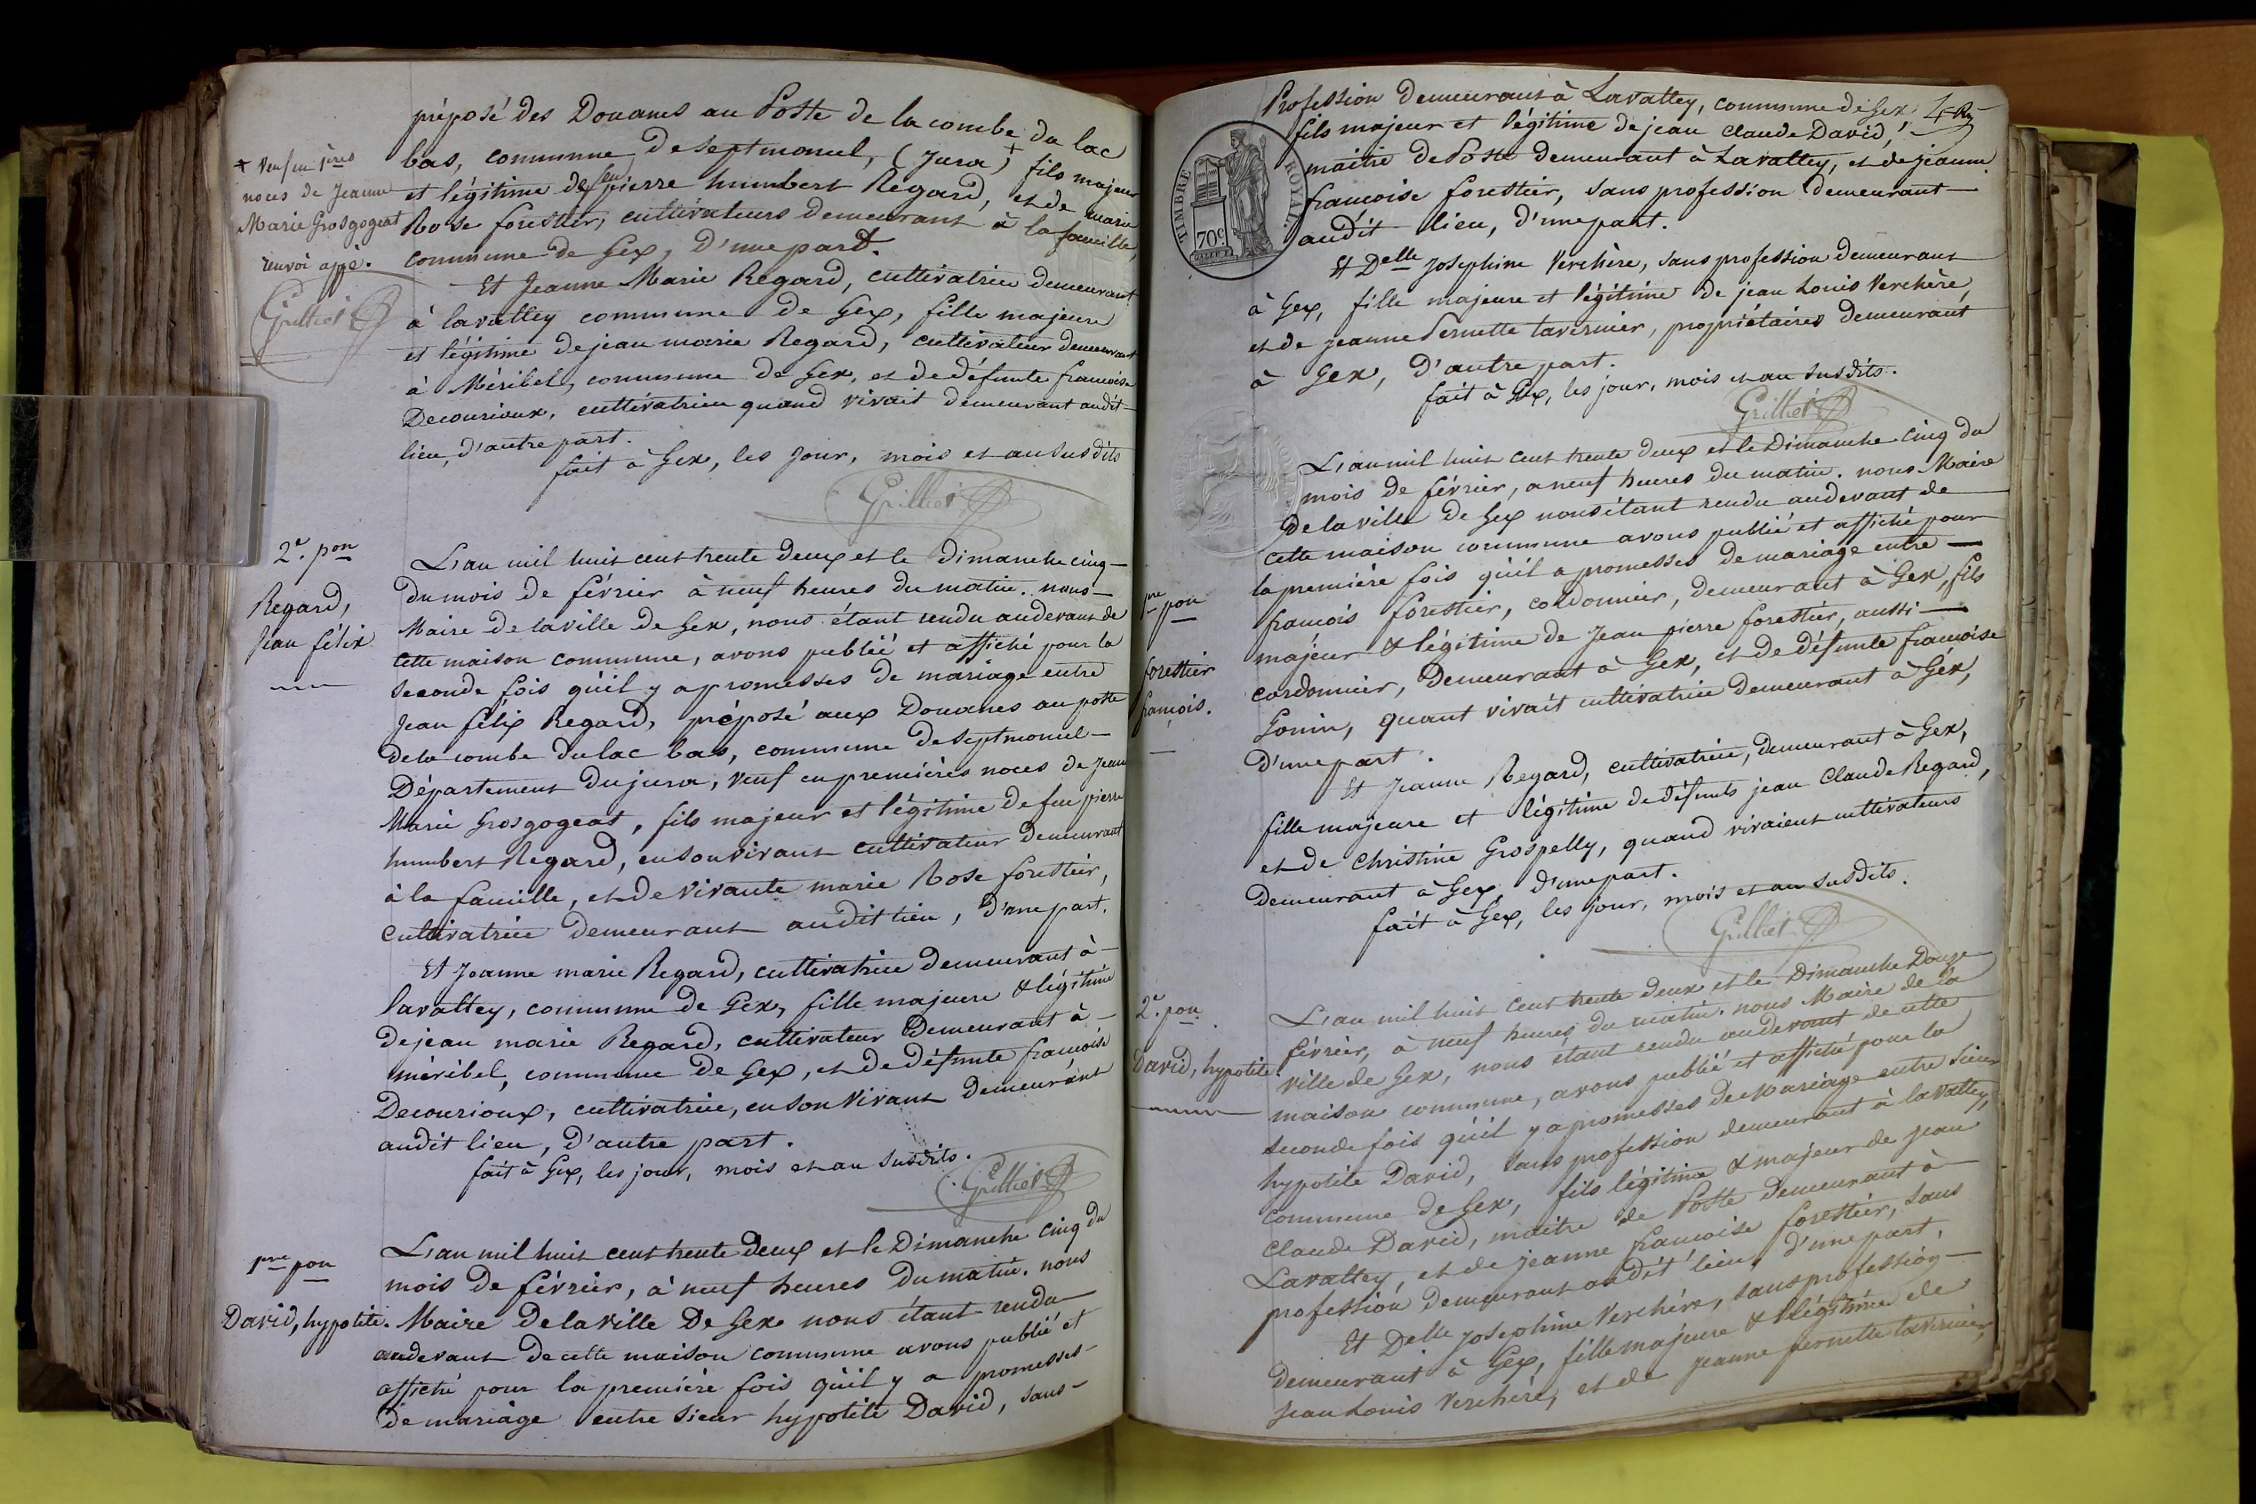 préposé des Douanes au Poste de la combe du lac
bas, commune de septmoncel, (Jura) + fils majeur
et légitime de feu pierre humbert Regard, et de marie
Rose forestier, cultivateurs demeurant à la faucille,
commune de Gex, d'une part.
+ Veuf en 1ères
noces de Jeanne
Marie Grosgogeat
renvoi appé.
Grilliet
Et Jeanne Marie Regard, cultivatrice demeurant
à lavattey commune de Gex, fille majeure
et légitime de jean marie Regard, cultivateur demeurant
à Méribel, commune de Gex, et de défunte francoise
Decourioux, cultivatrice quand vivait demeurant audit
lieu, d'autre part.
fait à Gex, les jour, mois et an susdits
Grilliet
2e. pon
Regard,
Jean félix
L'an mil huit cent trente deux et le dimanche cinq
du mois de février à neuf heures du matin. nous
Maire de la ville de Gex, nous étant rendu audevant de
cette maison commune, avons publié et affiché pour la
seconde fois qu'il y a promesses de mariage entre
Jean félix Regard, préposé aux Douanes au poste
de la combe du lac bas, commune de septmoncel
Département du jura, veuf en premières noces de Jeanne
Marie Grosgogeat, fils majeur et légitime de feu pierre
humbert Regard, en son vivant cultivateur demeurant
à la faucille, et de vivante marie Rose forestier,
cultivatrice demeurant audit lieu, d'une part.
Et Jeanne marie Regard, cultivatrice demeurant à
lavattey, commune de Gex, fille majeure & légitime
de jean marie Regard, cultivateur demeurant à
méribel, commune de Gex, et de défunte françoise
Decourioux, cultivatrice, en son vivant demeurant
audit lieu, d'autre part.
fait à Gex, les jour, mois et an susdits.
Grilliet
1re pon
David, hypolite.
L'an mil huit cent trente deux et le Dimanche cinq du
mois de février, à neuf heures du matin. nous
Maire de la ville de Gex nous étant rendu
audevant de cette maison commune avons publié et
affiché pour la première fois qu'il y a promesses
de mariage entre sieur hypolite David, sans
4
TIMBRE ROYAL
70c
Profession demeurant à Lavattey, commune de Gex,
fils majeur et légitime de jean claude David,
maître de Poste demeurant à Lavattey, et de jeanne
françoise forestier, sans profession demeurant
audit lieu, d'une part.
Et Delle Josephine Verchère, sans profession demeurant
à Gex, fille majeure et légitime de jean Louis Verchère,
et de jeanne Pernette tavernier, propriétaires demeurant
à Gex, d'autre part.
fait à Gex, les jour, mois et an susdits.
Grilliet
1re pon
forestier
françois.
L'an mil huit cent trente deux et le Dimanche cinq du
mois de février, à neuf heures du matin. nous Maire
de la ville de Gex nous étant rendu audevant de
cette maison commune avons publié et affiché pour
la première fois qu'il a promesses de mariage entre
francois forestier, cordonnier, demeurant à Gex, fils
majeur & légitime de Jean pierre forestier, aussi
cordonnier, demeurant à Gex, et de défunte françoise
Gonin, quant vivait cultivatrice demeurant à Gex,
d'une part.
Et Jeanne Regard, cultivatrice, demeurant à Gex,
fille majeure et légitime de défunts jean Claude Regard,
et de Christine Grospelly, quand vivaient cultivateurs
demeurant à Gex, d'une part.
fait à Gex, les jour, mois et an susdits.
Grilliet
2e. pon
David, hypolite
L'an mil huit cent trente deux et le Dimanche Douze
février, à neuf heures du matin. nous Maire de la
ville de Gex, nous étant rendu audevant de cette
maison commune, avons publié et affiché pour la
seconde fois qu'il y a promesses de mariage entre sieur
hypolite David, sans profession demeurant à lavattey,
commune de Gex, fils légitime & majeur de jean
Claude David, maître de Poste demeurant à
Lavattey, et de jeanne francoise forestier, sans
profession demeurant audit lieu, d'une part.
Et Delle Josephine Verchère, sans profession
demeurant à Gex, fille majeure & légitime de
jean Louis Verchère, et de jeanne pernette tavernier,